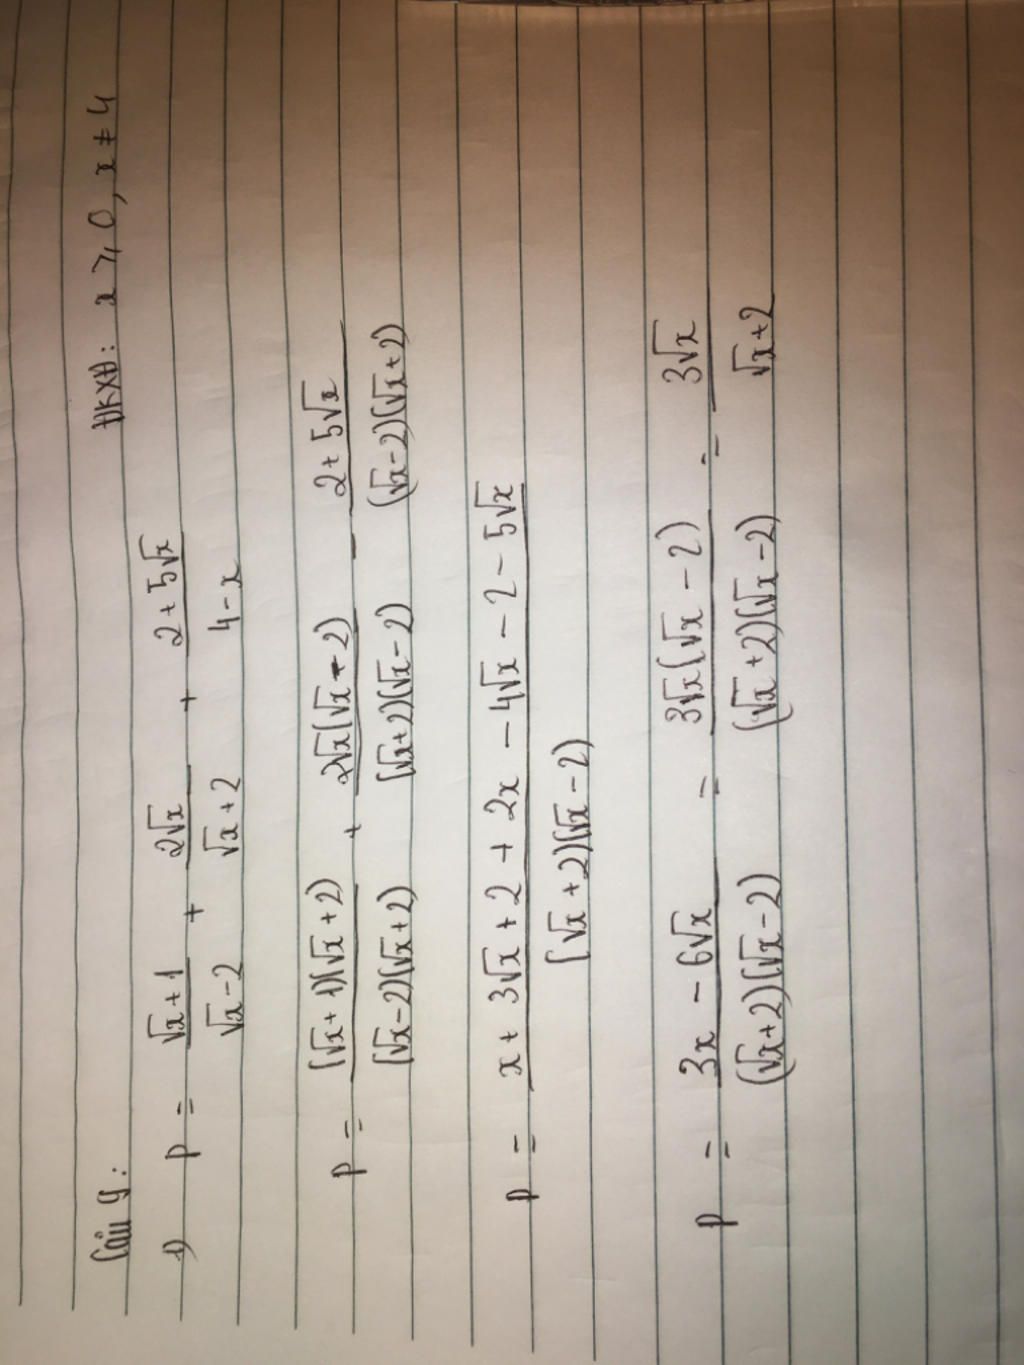 Câu 9:
ĐKXĐ: x ⩾ 0, x ≠ 4
1) P = (√x + 1)/(√x - 2) + (2√x)/(√x + 2) + (2 + 5√x)/(4 - x)
P = ((√x + 1)(√x + 2))/((√x - 2)(√x + 2)) + (2√x(√x - 2))/((√x + 2)(√x - 2)) - (2 + 5√x)/((√x - 2)(√x + 2))
P = (x + 3√x + 2 + 2x - 4√x - 2 - 5√x)/((√x + 2)(√x - 2))
P = (3x - 6√x)/((√x + 2)(√x - 2)) = (3√x(√x - 2))/((√x + 2)(√x - 2)) = (3√x)/(√x + 2)